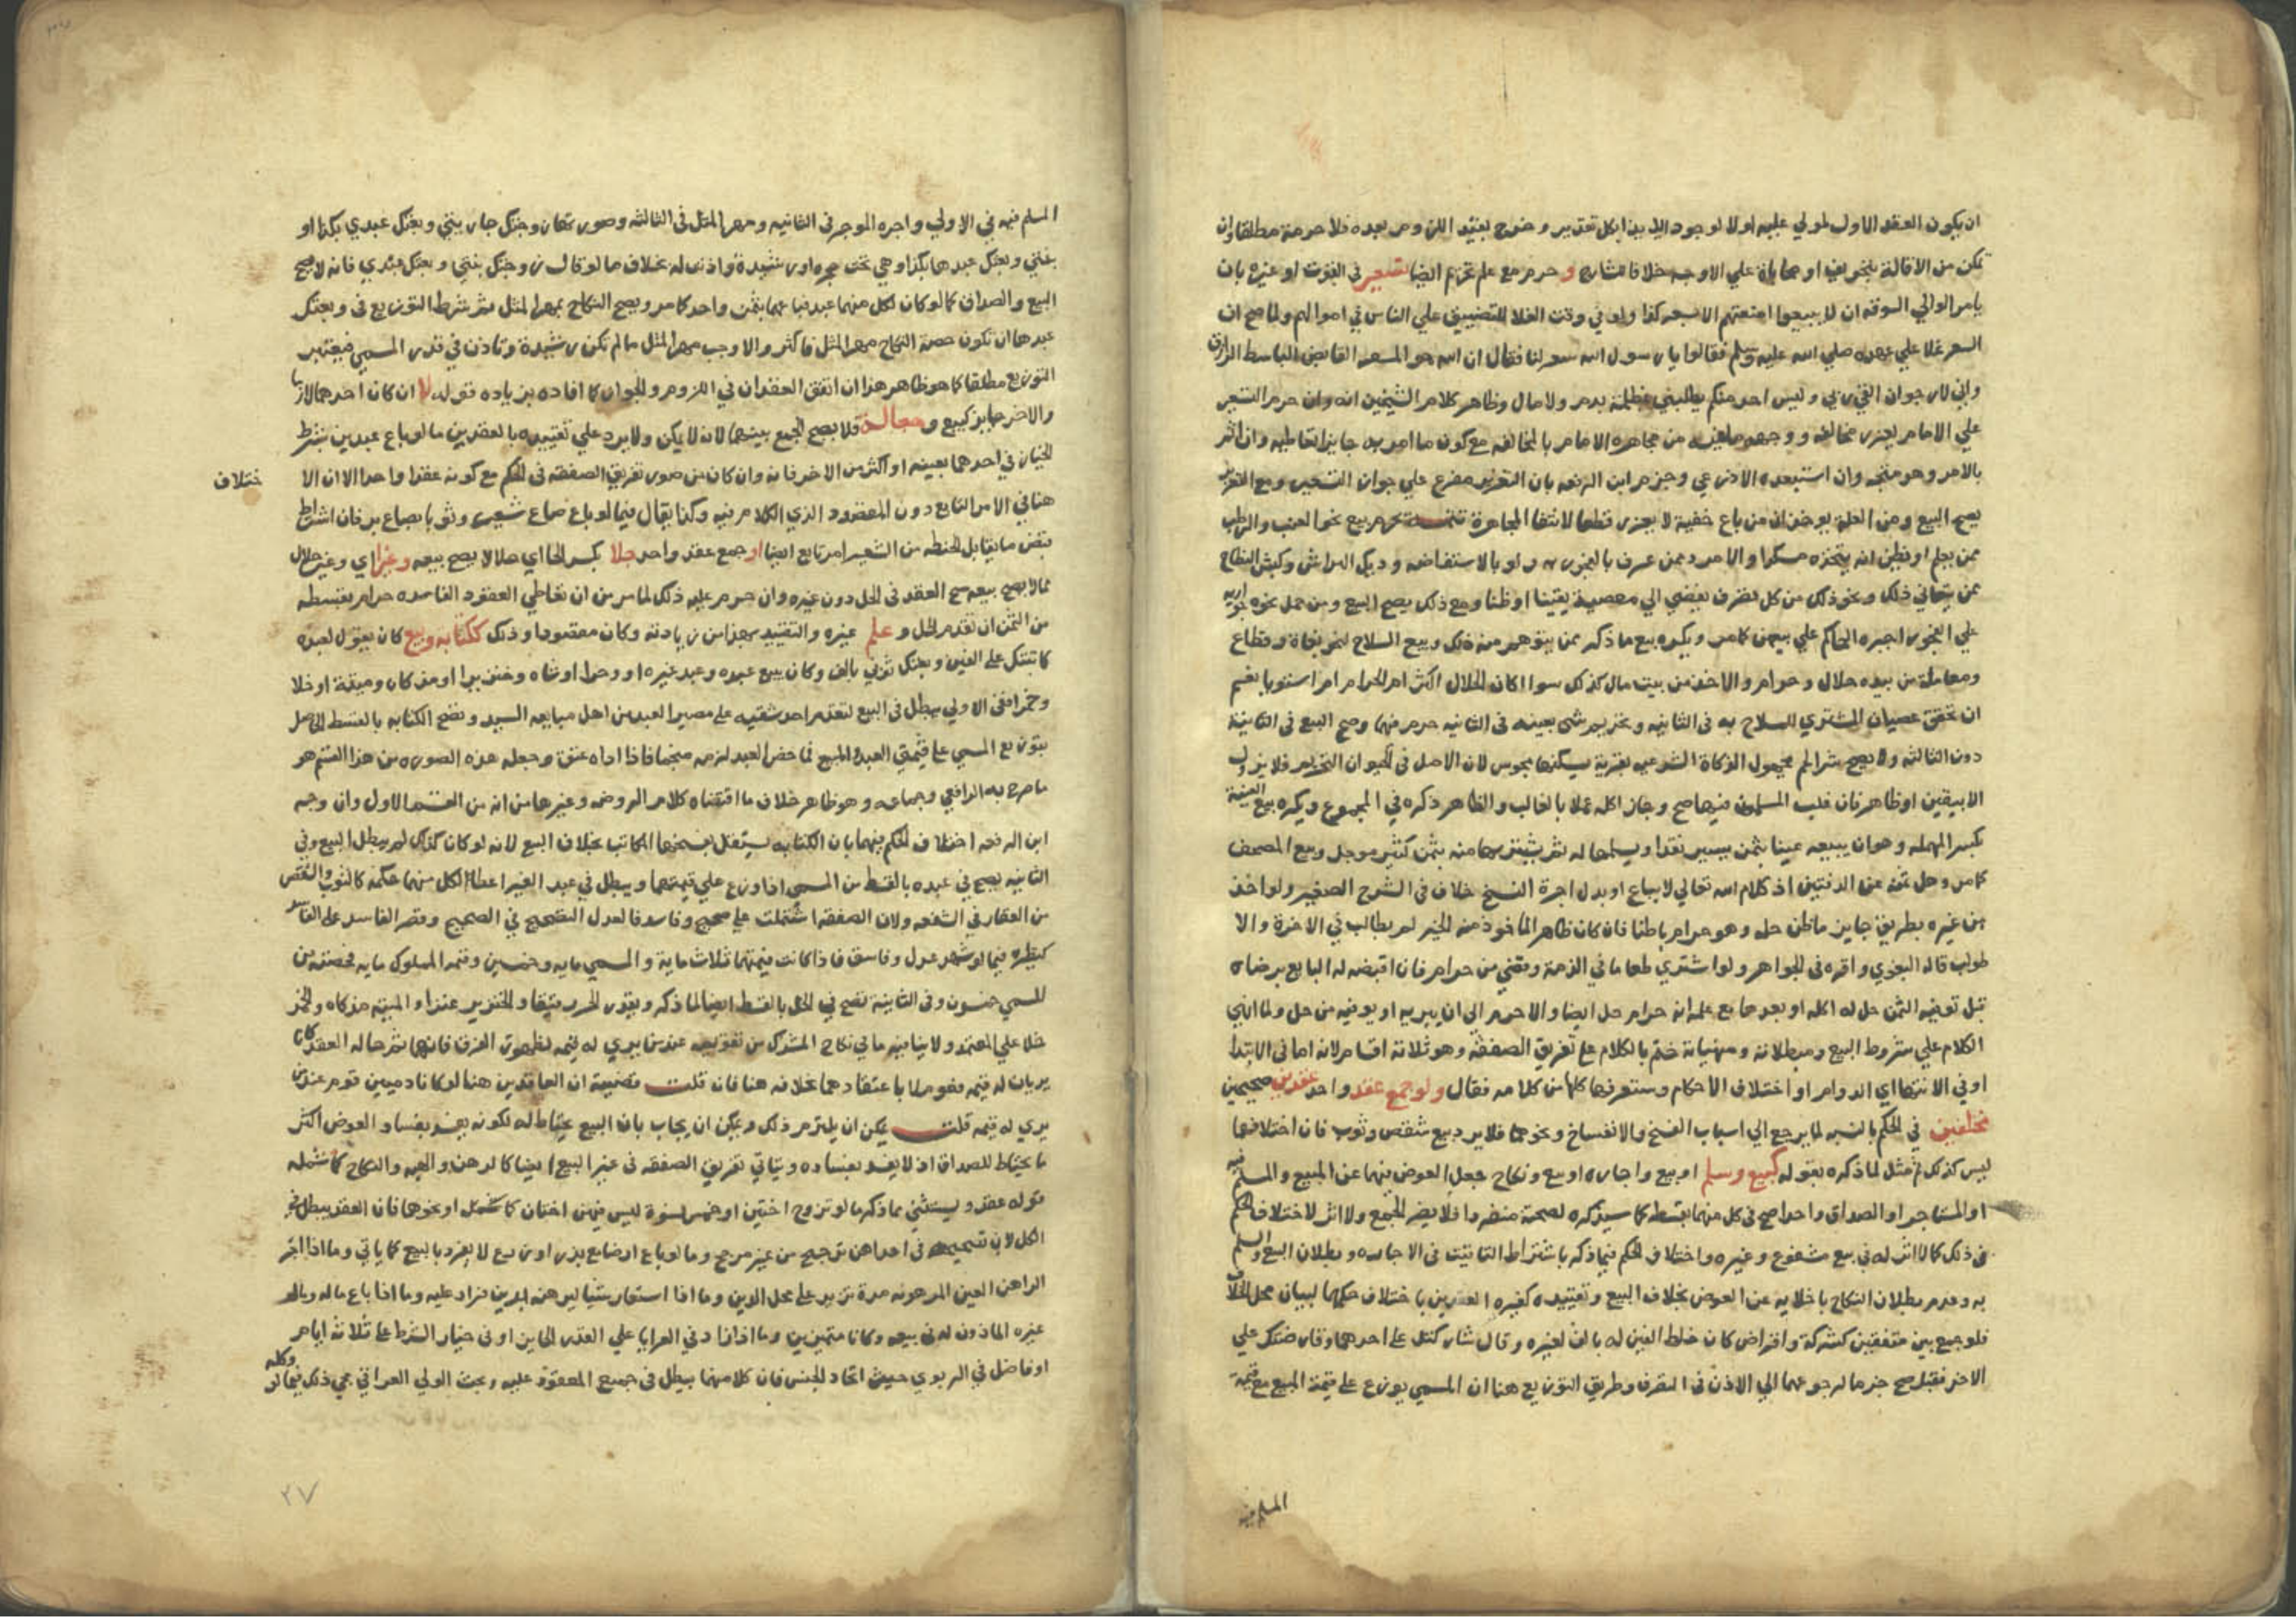 ان يكون العقد الاول لمولي عليه اولا لوجود الايذا بكل تقدير وخرج بعند اللزوم بعده فلا حرمة مطلقا وان
تمكن من الاقالة بتخويف او محاباة علي الاوجه خلافا لشارح وحرم مع علم تحريم ايضا تسعير في القوت او غيره بان
يامر الوالي السوقه ان لا يبيعوا امتعتهم الا بسعر كذا ولو في وقت الغلا للتضييق علي الناس في اموالهم ولما صح ان
السعر غلا علي عهده صلي الله عليه وسلم فقالوا يا رسول الله سعر لنا فقال ان الله هو المسعر القابض الباسط الرزاق
واني لارجو ان القي ربي وليس احد منكم يطلبني بمظلمة بدم ولا مال وظاهر كلام الشيخين انه وان حرم التسعير
علي الامام يعزر مخالفه ووجهه ما فيه من مجاهره الامام بالمخالفه مع كون ما امر به جايز تعاطيه وان اثم
بالامر وهو متجه وان استبعده الاذرعي وجزم ابن الرفعه بان التعزير مفرع علي جواز التسعير ومع التعزير
يصح البيع ومن العلة يوخذ ان من باع خفية لا يعزر قطعا لانتفا المجاهرة تتمة يحرم بيع نحو العنب والرطب
ممن يعلم او يظن انه يتخذه مسكرا والامرد ممن عرف بالفجور به ولو بالاستفاضه وديك الهراش وكبش النطاح
ممن يتعاني ذلك ونحو ذلك من كل تصرف يفضي الي معصية يقينا او ظنا ومع ذلك يصح البيع ومن حمل نحو جواريه
علي الفجور اجبره الحاكم علي بيعهن كما مر ويكره بيع ما ذكر ممن يتوهم منه ذلك وبيع السلاح لنحو بغاة وقطاع
ومعاملة من بيده حلال وحرام والاخذ من بيت مال كذلك سوا اكان الحلال اكثر ام الحرام ام استويا نعم
ان تحقق عصيان المشتري للسلاح به في الثانيه وتحريم شي بعينه في الثانيه حرم فيهما وصح البيع في الثانية
دون الثالثه ولا يصح شرا لحم مجهول الزكاة الشرعيه بقرية يسكنها مجوس لان الاصل في الحيوان التحريم فلا يزول
الا بيقين او ظاهر فان غلب المسلمون فيها صح وجاز اكله عملا بالغالب والظاهر ذكره في المجموع ويكره بيع العينة
بكسر المهمله وهو ان يبيعه عينا بثمن يسير نقدا ويسلمها له ثم يشتريها منه بثمن كثير موجل وبيع المصحف
كما مر وهل ثمنه عن الدفتين اذ كلام الله تعالي لا يباع او بدل اجرة النسخ خلاف في الشرح الصغير ولو اخذ
من غيره بطريق جايز ما ظن حله وهو حرام باطنا فان كان ظاهر الماخوذ منه الخير لم يطالب في الاخرة والا
طولب قاله البغوي واقره في الجواهر ولو اشتري طعاما في الذمة وقضي من حرام فان اقبضه له البايع برضاه
قبل توفيه الثمن حل له اكله او بعدها مع علمه انه حرام حل ايضا والا حرم الي ان يبريه او يوفيه من حل ولما انهي
الكلام علي شروط البيع ومبطلاته ومنهياته ختم بالكلام علي تفريق الصفقة وهو ثلاثة اقسام لانه اما في الابتدا
او في الانتها اي الدوام او اختلاف الاحكام وستعرفها كلها من كلامه فقال ولو جمع عقد واحد عقدين صحيحين
مختلفين في الحكم بالنسبه لما يرجع الي اسباب الفسخ والانفساخ ونحوهما فلا يرد بيع شقص وثوب فان اختلافهما
ليس كذلك ثم مثل لما ذكره بقوله كبيع وسلم او بيع واجاره او بيع ونكاح جعل العوض فيهما عن المبيع والمسلم فيه
او المستاجر او الصداق واحدا صح في كل منهما بقسطه كما سيذكره لصحته منفردا فلا يضر الجمع ولا اثر لاختلاف الحكم
في ذلك كما لا اثر له في بيع مشفوع وغيره واختلاف الحكم فيما ذكر باشتراط التاقيت في الاجاره وبطلان البيع والسلم
به وعدم بطلان النكاح باخلايه عن العوض بخلاف البيع وتقييده كغيره العقدين باختلاف حكمهما لبيان محل الخلاف
فلو جمع بين متفقين كشركة وقراض كان خلط الفين له بالف لغيره وقال شاركتك علي احدهما وقارضتك علي
الاخر فقبل صح جزما لرجوعهما الي الاذن في التصرف وطريق التوزيع هنا ان المسمي يوزع علي قيمة المبيع مع قيمة
المسلم فيه
المسلم فيه في الاولي واجره الموجر في الثانيه ومهر المثل في الثالثه وصورتها زوجتك جاريتي وبعتك عبدي بكذا او
بنتي وبعتك عبدها بكذا وهي تحت حجره او رشيدة واذنت له بخلاف ما لو قال زوجتك بنتي وبعتك عبدي فانه لا يصح
البيع والصداق كما لو كان لكل منهما عبد فباعهما بثمن واحد كما مر ويصح النكاح بمهر المثل ثم شرط التوزيع في وبعتك
عبدها ان تكون حصة النكاح مهر المثل فاكثر والا وجب مهر المثل ما لم تكن رشيدة وتاذن في قدر المسمي فيعتبر
التوزيع مطلقا كما هو ظاهر هذا ان اتفق العقدان في اللزوم والجواز كما افاده بزياده قوله لا ان كان احدهما لازما
والاخر جايز كبيع وجعالة فلا يصح الجمع بينهما لانه لا يمكن ولا يرد علي تقييده بالعقدين ما لو باع عبدين بشرط
الخيار في احدهما بعينه او اكثر من الاخر فانه وان كان من صور تفريق الصفقه في الحكم مع كونه عقدا واحدا الا ان الا
ختلاف
هنا في الامر التابع دون المقصود الذي الكلام فيه وكذا يقال فيما لو باع صاع شعير وثوبا بصاع بر فان اشتراط
قبض ما يقابل الحنطه من الشعير امر تابع ايضا او جمع عقد واحد حلا بكسر الحا اي حلالا يصح بيعه وغيرا اي وغير حلال
مما لا يصح بيعه صح العقد في الحل دون غيره وان حرم عليه ذلك لما مر من ان تعاطي العقود الفاسده حرام بقسطه
من الثمن ان تقدم الحل وعلم غيره والتقييد بهذا من زيادته وكان مقصودا وذلك ككتابه وبيع كان يقول لعبده
كاتبتك علي الفين وبعتك ثوبي بالف وكان يبيع عبده وعبد غيره او وحرا او شاه وخنزيرا او مذكاه وميتة او خلا
وخمرا ففي الاولي يبطل في البيع لتقدم احد شقيه علي مصير العبد من اهل مبايعه السيد وتصح الكتابه بالقسط الحاصل
بتوزيع المسمي علي قيمتي العبد والمبيع فما خص العبد لزمه منجما فاذا اداه عتق وجعله هذه الصوره من هذا القسم هو
ما صرح به الرافعي وجماعه وهو ظاهر خلاف ما اقتضاه كلام الروضه وغيرها من انه من القسم الاول وان وجه
ابن الرفعه اختلاف الحكم فيهما بان الكتابه يستقل بفسخها المكاتب بخلاف البيع لانه لو كان كذلك لم يبطل البيع وفي
الثانيه يصح في عبده بالقسط من المسمي اذا وزع علي قيمتهما ويبطل في عبد الغير اعطا لكل منهما حكمه كالثوب والشقص
من العقار في الشفعه ولان الصفقه اشتملت علي صحيح وفاسد فالعدل التصحيح في الصحيح وقصر الفاسد علي الفاسد
كنظيره فيما لو شهد عدل وفاسق فاذا كانت قيمتهما ثلاث ماية والمسمي مايه وخمسين وقيمه المملوك مايه فحصته من
المسمي خمسون وفي الثانية تصح في الحل بالقسط ايضا لما ذكر ويقدر الحر رقيقا والخنزير عنزا والميته مذكاه والخمر
خلا علي المعتمد ولا ينافيه ما في نكاح المشرك من تقويمه عند من يري له قيمه لظهور الفرق فانهما ثم حاله العقد كانا
يريان له قيمه فعوملا باعتقادهما بخلافه هنا فان قلت قضيته ان العاقدين هنا لو كانا دميين قوم عند من
يري له قيمه قلت يمكن ان يلتزم ذلك ويمكن ان يجاب بان البيع يحتاط له لكونه يفسد بفساد العوض اكثر
ما يحتاط للصداق اذ لا يفسد بفساده وياتي تفريق الصفقه في غير البيع ايضا كالرهن والهبه والنكاح كما شمله
قوله عقد ويستثني مما ذكره ما لو تزوج اختين او خمس نسوة ليس فيهن اختان كما شمل او نحوهما فان العقد يبطل في
الكل لان تصحيحه في احداهن ترجيح من غير مرجح وما لو باع ارضا مع بذر او زرع لا يفرد بالبيع كما ياتي وما اذا اجر
الراهن العين المرهونه مدة تزيد علي محل الدين وما اذا استعار شيا ليرهنه بدين فزاد عليه وما اذا باع ماله ومال
غيره الماذون له في بيعه وكانا متميزين وما اذا زاد في العرايا علي القدر الجايز او في خيار الشرط علي ثلاثه ايام
او فاضل في الربوي حيث اتحاد الجنس فان كلا منهما يبطل في جميع المعقود عليه وبحث الولي العراقي مجي ذلك فيما لو وكله
٢٧